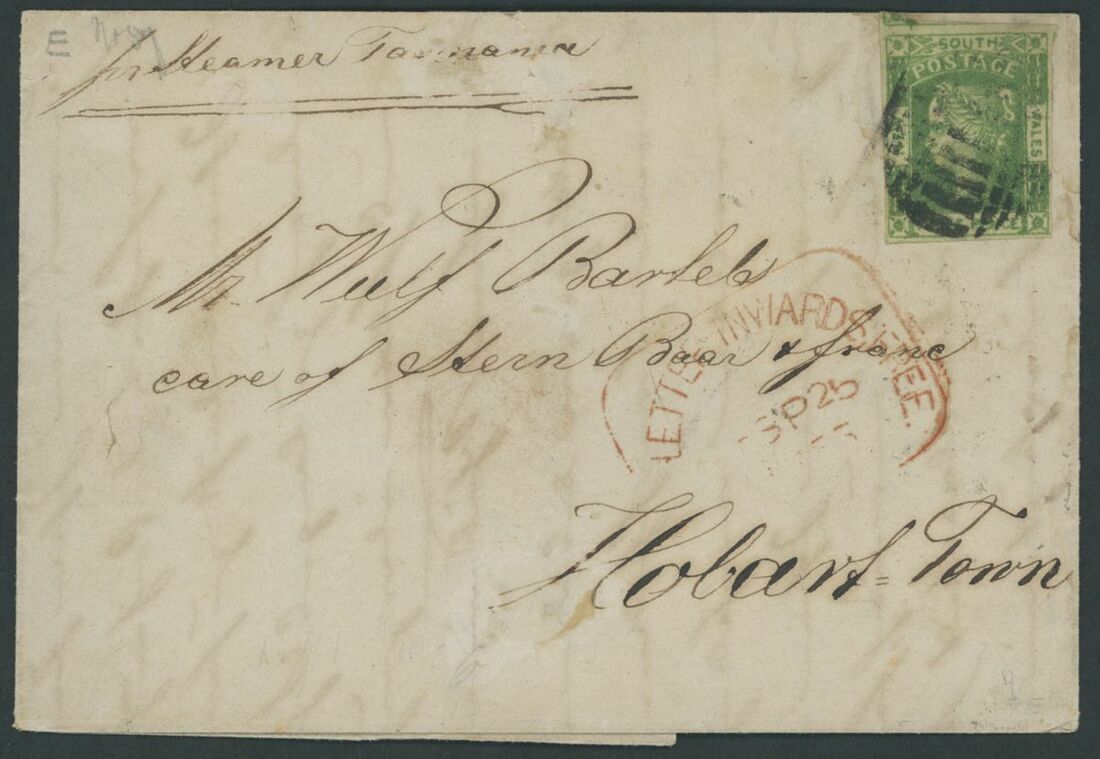 E
pr Steamer Tasmania
SOUTH
POSTAGE
WALES
Mr. Wulf Bartels
care of Stern Baar & franc
LETTER INWARDS FREE.
SP 25
Hobart=Town